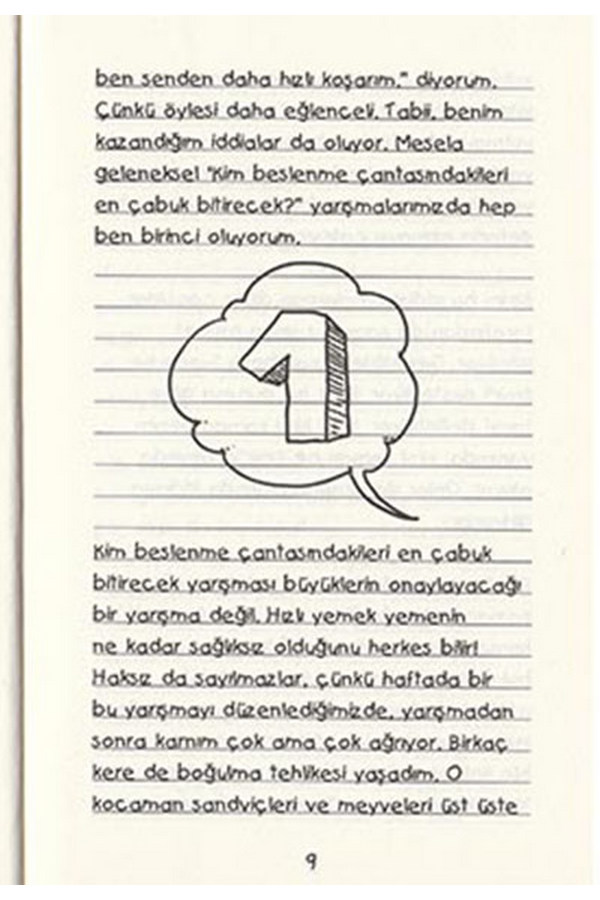 ben senden daha hızlı koşarım." diyorum.
Çünkü öylesi daha eğlenceli. Tabii, benim
kazandığım iddialar da oluyor. Mesela
geleneksel "Kim beslenme çantasındakileri
en çabuk bitirecek?" yarışmalarımızda hep
ben birinci oluyorum.
1
Kim beslenme çantasındakileri en çabuk
bitirecek yarışması büyüklerin onaylayacağı
bir yarışma değil. Hızlı yemek yemenin
ne kadar sağlıksız olduğunu herkes bilir!
Haksız da sayılmazlar, çünkü haftada bir
bu yarışmayı düzenlediğimizde, yarışmadan
sonra karnım çok ama çok ağrıyor. Birkaç
kere de boğulma tehlikesi yaşadım. O
kocaman sandviçleri ve meyveleri üst üste
9